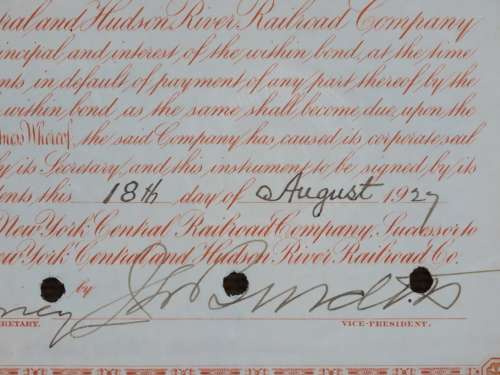 ral and Hudson River Railroad Company
rincipal and interest of the within bond, at the time
nts in default of payment of any part thereof by the
within bond as the same shall become due, upon the
tness Whereof, the said Company has caused its corporate seal
y its Secretary, and this instrument to be signed by its
dents this 18th day of August 1927
New York Central Railroad Company, Successor to
New York Central and Hudson River Railroad Co.
by
RETARY. VICE-PRESIDENT.